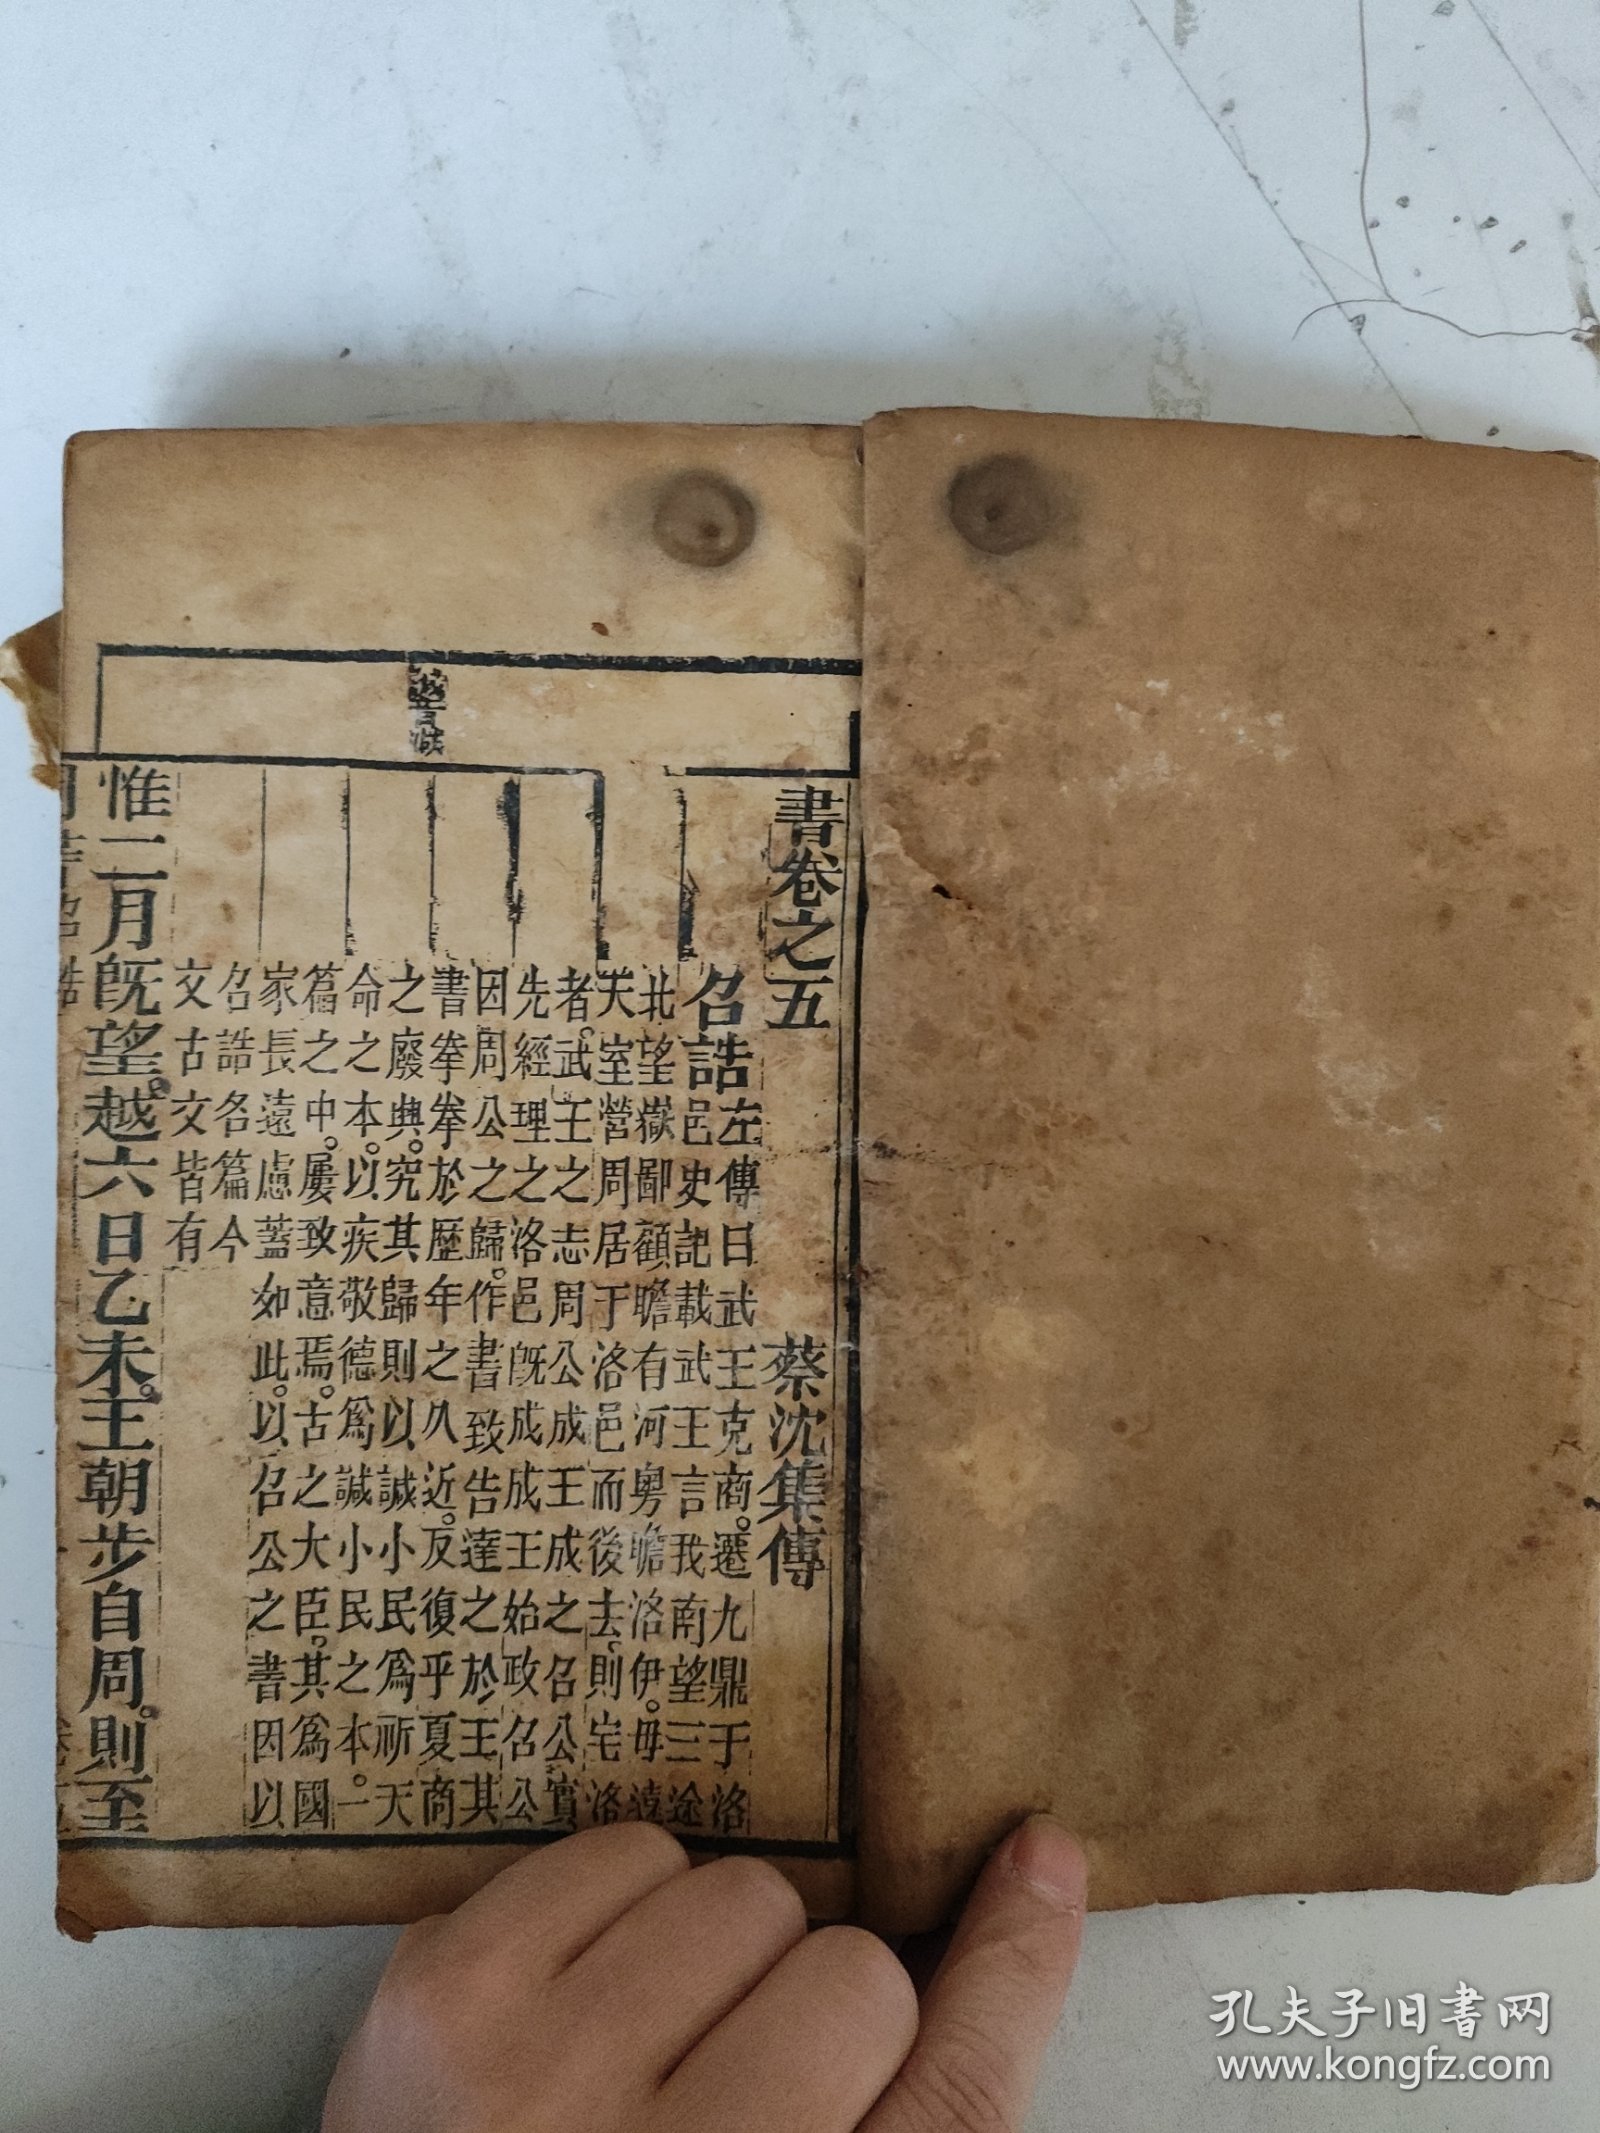 書卷之五 蔡沈集傳
召誥
左傳曰武王克商。遷九鼎于洛
邑史記載武王言我南望三途
北望嶽鄙顧瞻有河粵瞻洛伊。毋遠
天室營周居于洛邑而後去則宅洛
者。武王之志周公成王成之召公實
先經理之洛邑既成成王始政召公
因周公之歸。作書致告達之於王其
書拳拳於歷年之久近。反復乎夏商
之廢興。究其歸則以諴小民爲祈天
命之本。以疾敬德爲諴小民之本。一
篇之中。屢致意焉。古之大臣。其爲國
家長遠慮蓋如此。以召公之書因以
召誥名篇今
文古文皆有
惟二月既望。越六日乙未。王朝步自周。則至
孔夫子旧书网
www.kongfz.com